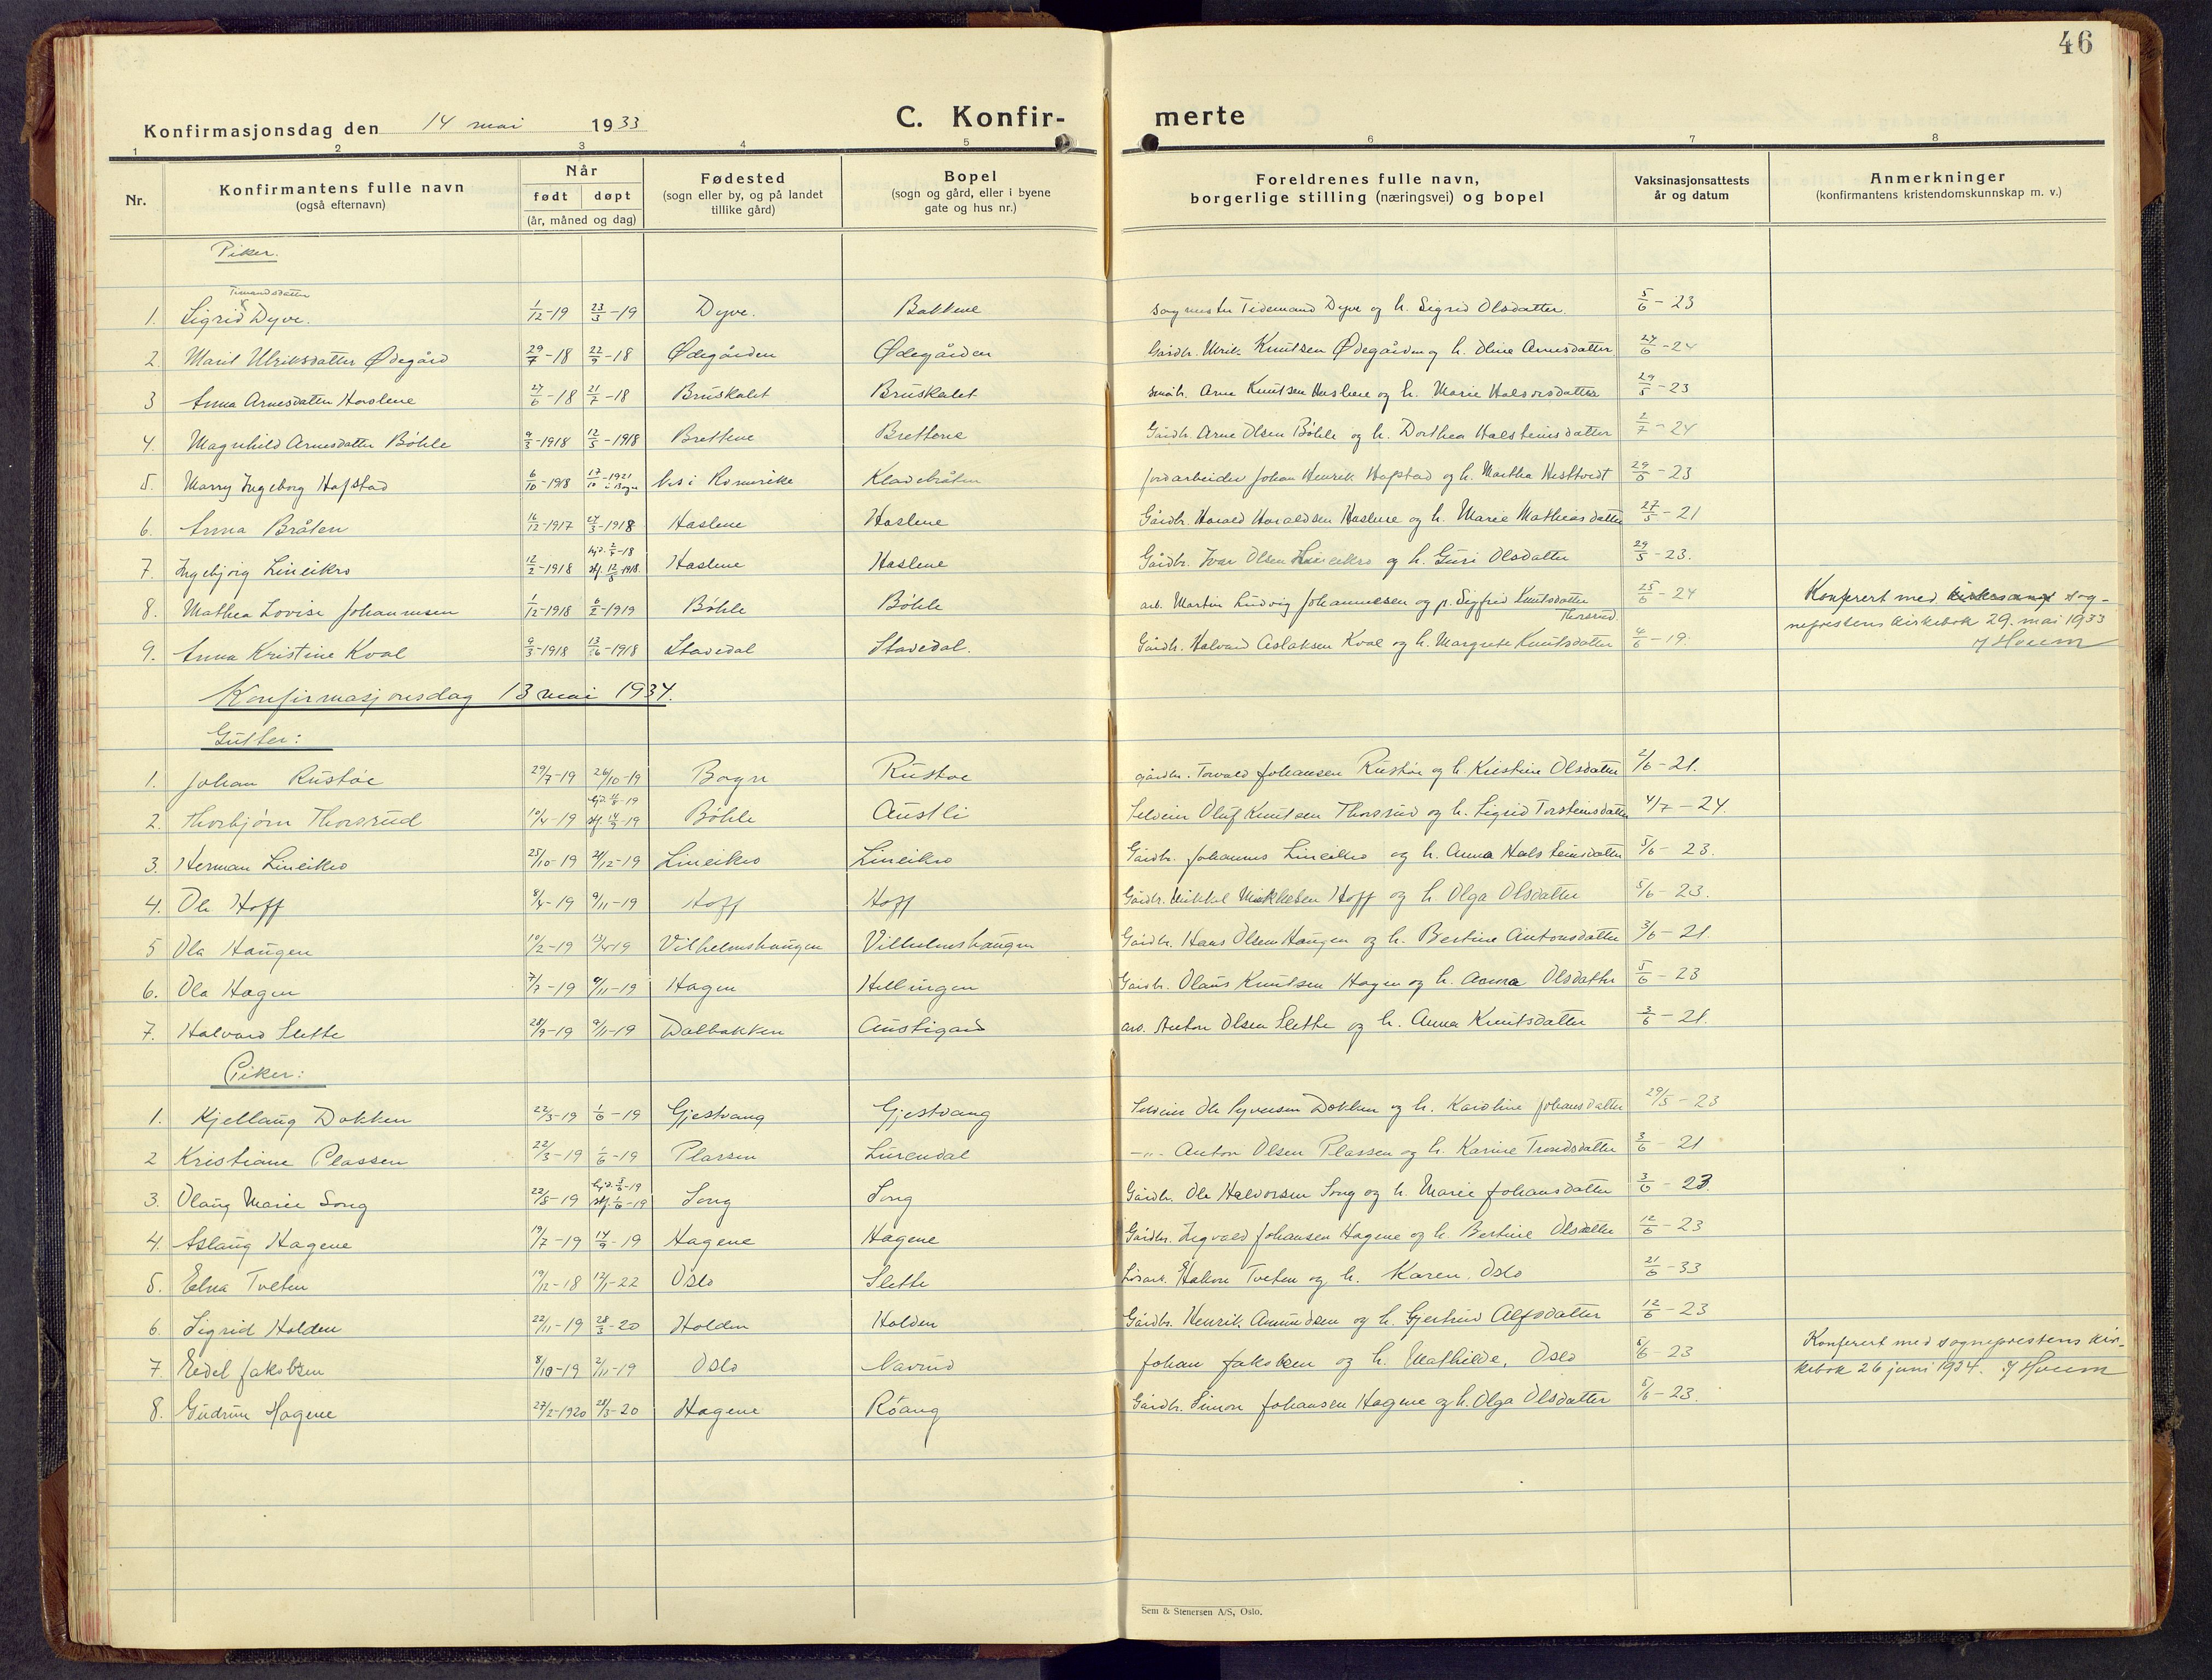 46
Konfirmasjonsdag den 14 mai 1933 C. Konfir- merte
1 2 3 4 5 6 7 8
Nr. Konfirmantens fulle navn (også efternavn) Når født døpt (år, måned og dag) Fødested (sogn eller by, og på landet tillike gård) Bopel (sogn og gård, eller i byene gate og hus nr.) Foreldrenes fulle navn, borgerlige stilling (næringsvei) og bopel Vaksinasjonsattests år og datum Anmerkninger (konfirmantens kristendomskunnskap m. v.)
Piker.
1. Sigrid Timandsdatter Dyve. 1/12-19 23/3-19 Dyve. Bakkene Tidemand Dyve og h. Sigrid Olsdatter. 5/6-23
2. Marit Ulriksdatter Ødegård 29/7-18 22/9-18 Ødegården Ødegården Gårdbr. Ulrik Knutsen Ødegården og h. Oline Arnesdatter 24/6-24
3 Anna Arnesdatter Haslene 27/6-18 21/7-18 Bruskalet Bruskalet småbr. Arne Knutsen Haslene og h. Marie Halvorsdatter 29/5-23
4. Magnhild Arnesdatter Böhle 9/3-1918 12/5-1918 Brettene Brettene Gårdbr. Arne Olsen Böhle og h. Dorthea Halsteinsdatter 2/7-24
5. Marry Ingeborg Hafstad 6/10-1918 17/10-1921 i Bagn Nes i Romerike Kladebråten jordarbeider Johan Henrik Hafstad og h. Martha Hesttvedt 29/5-23
6. Anna Bråten 16/12-1917 24/3-1918 Haslene Haslene Gårdbr. Harald Haraldsen Haslene og h. Marie Mathiasdatter 27/5-21
7. Ingebjörg Lineikro 12/2-1918 hjd. 2/4-18 stf. 12/5 1918. Haslene Haslene Gårdbr. Ivar Olsen Lineikro og h. Guri Olsdatter 29/5-23.
8. Mathea Lovise Johannesen 1/12-1918 6/2-1919 Böhle Böhle arb. Martin Ludvig Johannesen og p. Sigfrid Knutsdatter Thorsrud. 25/6-24 Konferert med sog-
9. Anna Kristine Kval 9/3-1918 13/6-1918 Stavedal Stavedal. Gårdbr. Halvard Aslaksen Kval og h. Margrete Knutsdatter 4/6-19. neprestens kirkebok 29. mai 1933
J Hoem
Konfirmasjonsdag 13 mai 1934.
Gutter:
1. Johan Rustöe 29/7-19 26/10-19 Bagn Rustöe gårdbr. Torvald Johansen Rustöe og h. Kristine Olsdatter 2/6-21.
2. Thorbjörn Thorsrud 10/4-19 hjd. 11/5-19 stf. 14/9-19 Böhle Austli Selveier Oluf Knutsen Thorsrud og h. Sigrid Torsteinsdatter 4/7-24.
3. Herman Lineikro 25/10-19 21/12-19 Lineikro Lineikro Gårdbr. Johannes Lineikro og h. Anna Halsteinsdatter 5/6-23.
4. Ole Hoff 8/4-19 9/11-19 Hoff Hoff Gårdbr. Mikkel Mikkelsen Hoff og h. Olga Olsdatter 5/6-23.
5 Ola Haugen 10/2-19 13/4-19 Vilhelmshaugen Vilhelmshaugen Gårdbr. Hans Olsen Haugen og h. Bertine Antonsdatter 3/6-21.
6. Ola Hagen 7/7-19 9/11-19 Hagen Hellingen Gårdbr. Olaus Knutsen Hagen og h. Anna Olsdatter 5/6-23
7. Halvard Slette 28/9-19 9/11-19 Dalbakken Austigard arb. Anton Olsen Slette og h. Anna Knutsdatter 3/6-21.
Piker:
1. Kjellaug Dokken 22/3-19 1/6-19 Gjestvang Gjestvang Selveier Ole Syversen Dokken og h. Karoline Johansdatter 29/5-23
2 Kristiane Plassen 22/3-19 1/6-19 Plassen Linendal -"- Anton Olsen Plassen og h. Karine Trondsdatter 3/6-21
3. Olaug Marie Song 22/5-19 hjd. 3/6-19 stf. 1/6-19 Song Song Gårdbr. Ole Halvorsen Song og h. Marie Johansdatter 3/6-23.
4. Aslaug Hagene 19/7-19 14/9-19 Hagene Hagene Gårdbr. Ingvald Johansen Hagene og h. Bertine Olsdatter 12/6-23
5. Edna Tveten 19/12-18 12/1-22 Oslo Slette Håkon Tveten og h. Karen. Oslo 21/6-33
6. Sigrid Holden 22/11-19 28/3-20 Holden Holden Gårdbr. Henrik Amundsen og h. Gjertrud Alfsdatter 12/6-23
7. Eidel Jakobsen 8/10-19 2/11-19 Oslo Navrud Johan Jakobsen og h. Mathilde, Oslo 5/6-23 Konferert med sogneprestens kir-
8. Gudrun Hagene 27/2-1920 28/3-20 Hagene Röang Gårdbr. Simon Johansen Hagene og h. Olga Olsdatter 5/6-23. kebok 26 juni 1934. J Hoem
Sem & Stenersen A/S, Oslo.